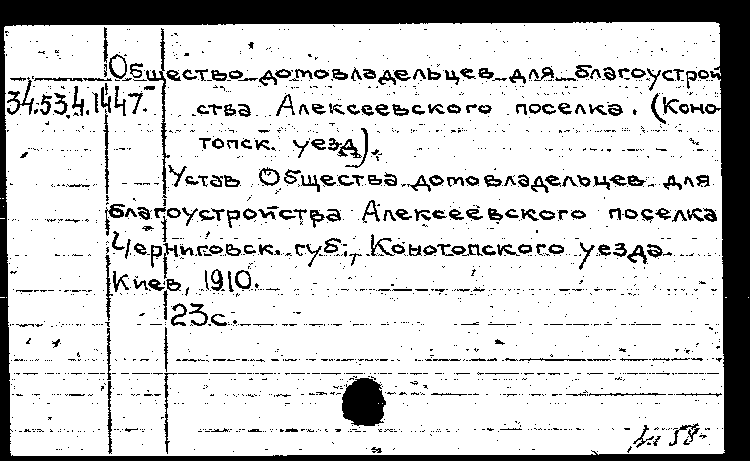 Общество домовладельцев для благоустрой
34.53.4.1447. ства Алексеевского поселка. (Коно-
топск. уезд).
Устав Общества домовладельцев для
благоустройства Алексеевского поселка
Черниговск. губ., Конотопского уезда.
Киев, 1910.
23с.
58-